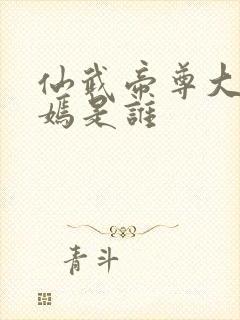 仙武帝尊大
媽是誰
青斗